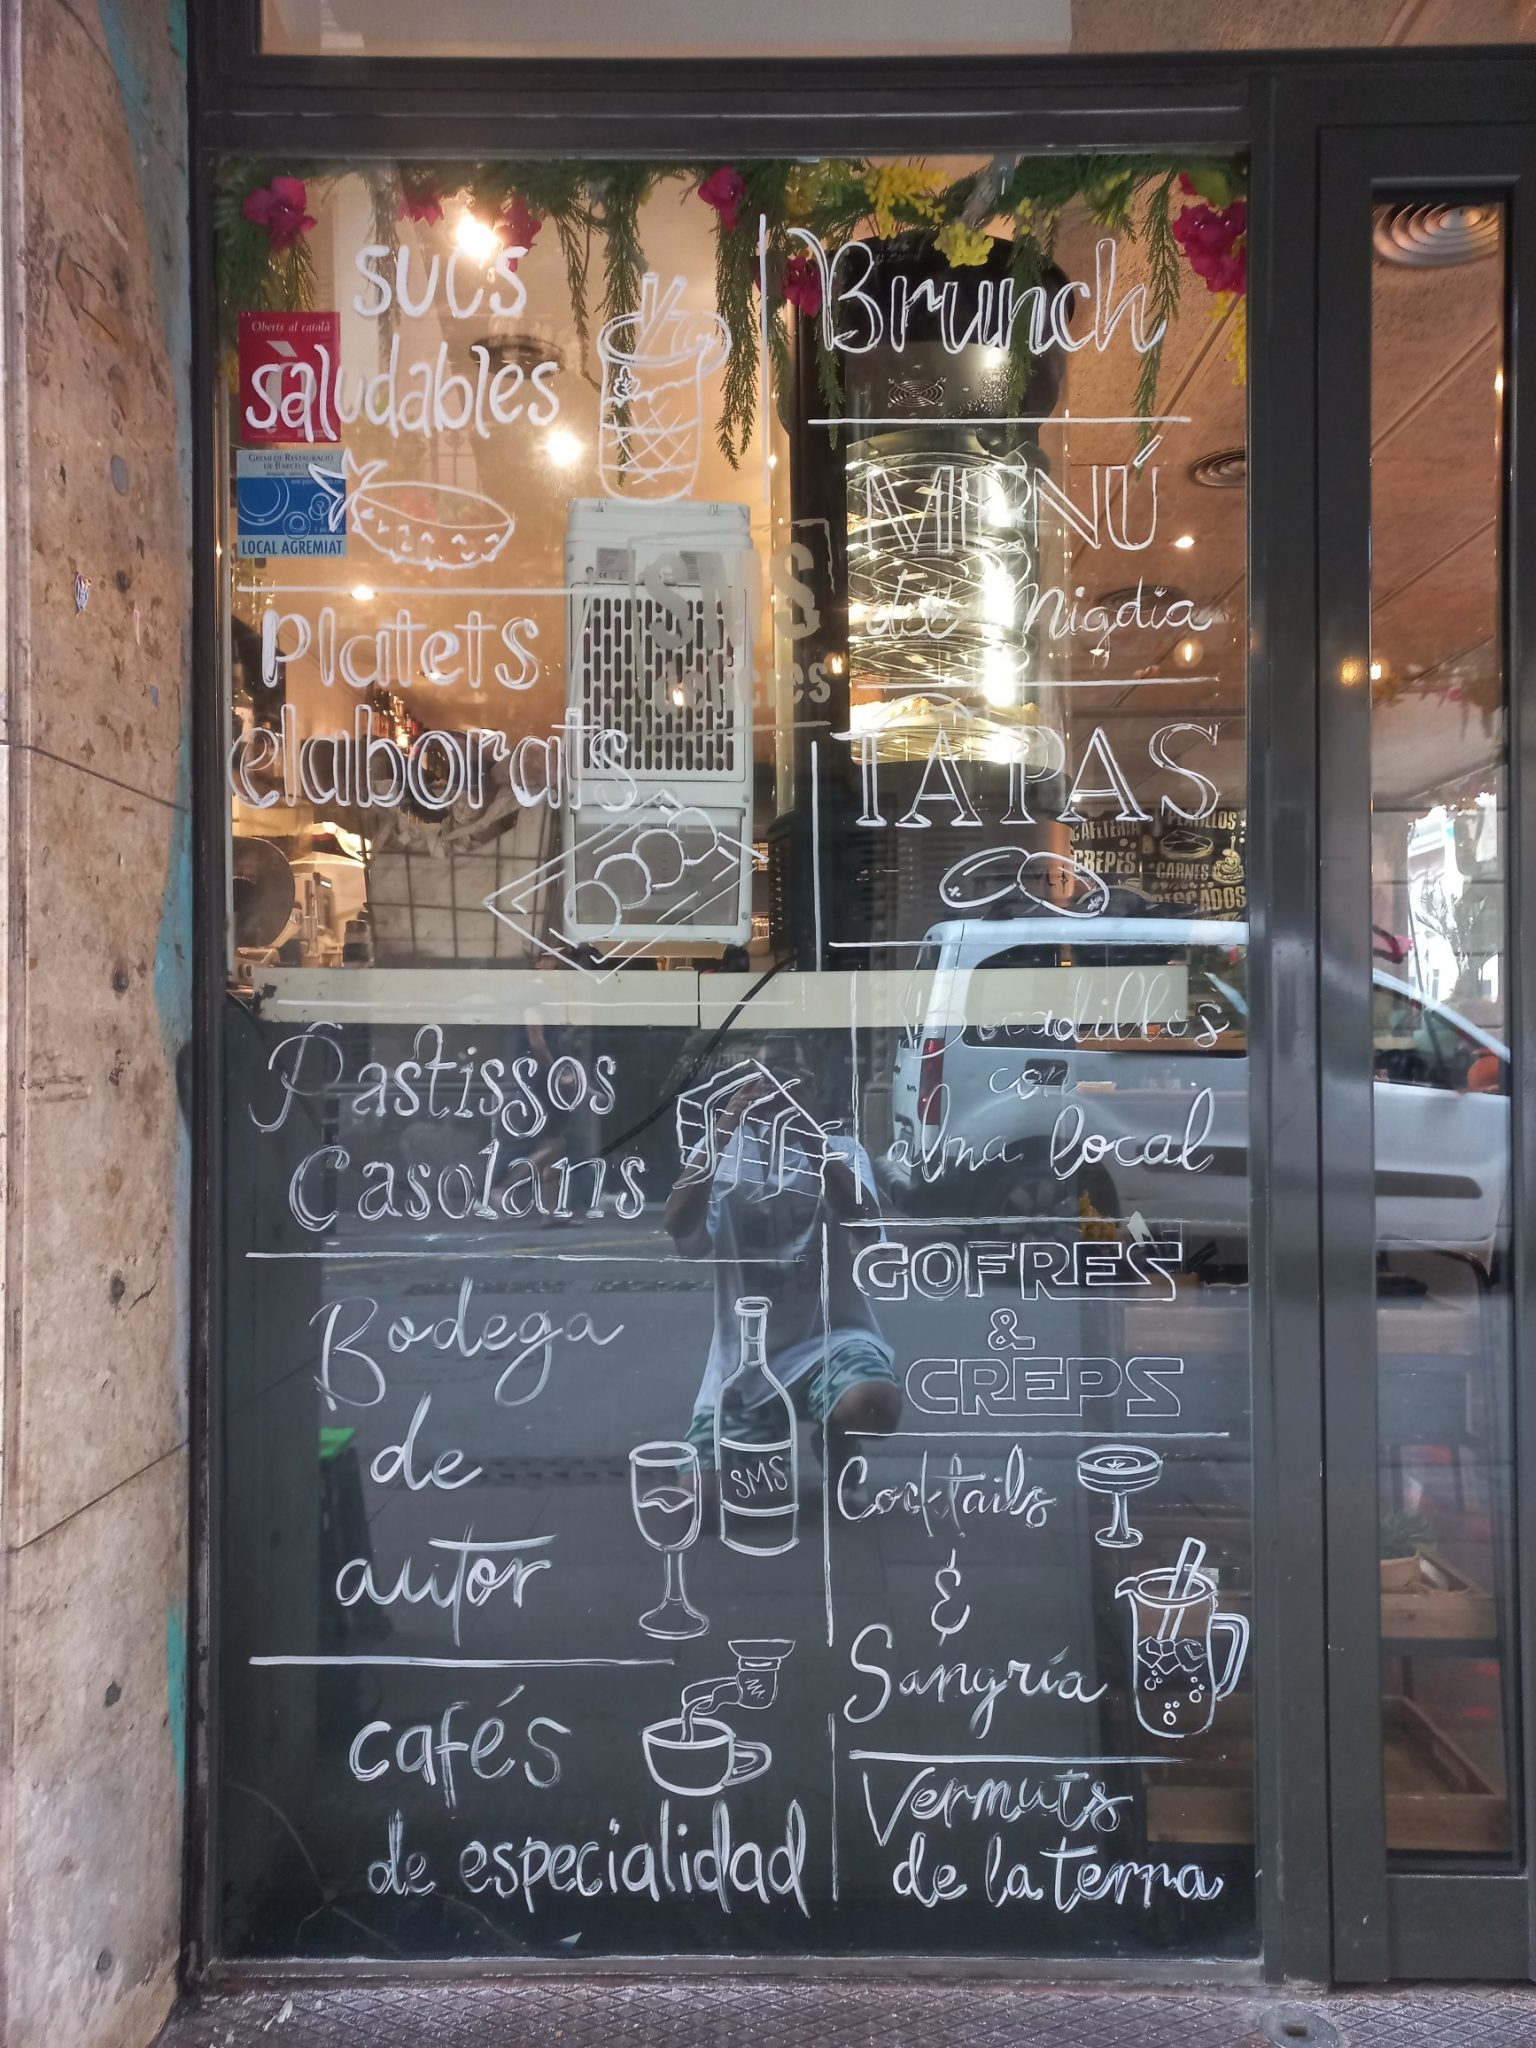 sucs
saludables
Oberts al català
GREMI DE RESTAURACIÓ
DE BARCELONA
LOCAL AGREMIAT
Platets
elaborats
Pastissos
Casolans
Bodega
de
autor
SMS
cafés
de especialidad
Brunch
MENÚ
del Migdia
TAPAS
Bocadillos
con
alma local
GOFRES
&
CREPS
Cocktails
&
Sangría
Vermuts
de la terra
SMS
CAFETERIA
PLATILLOS
CREPES
CARNES
PESCADOS